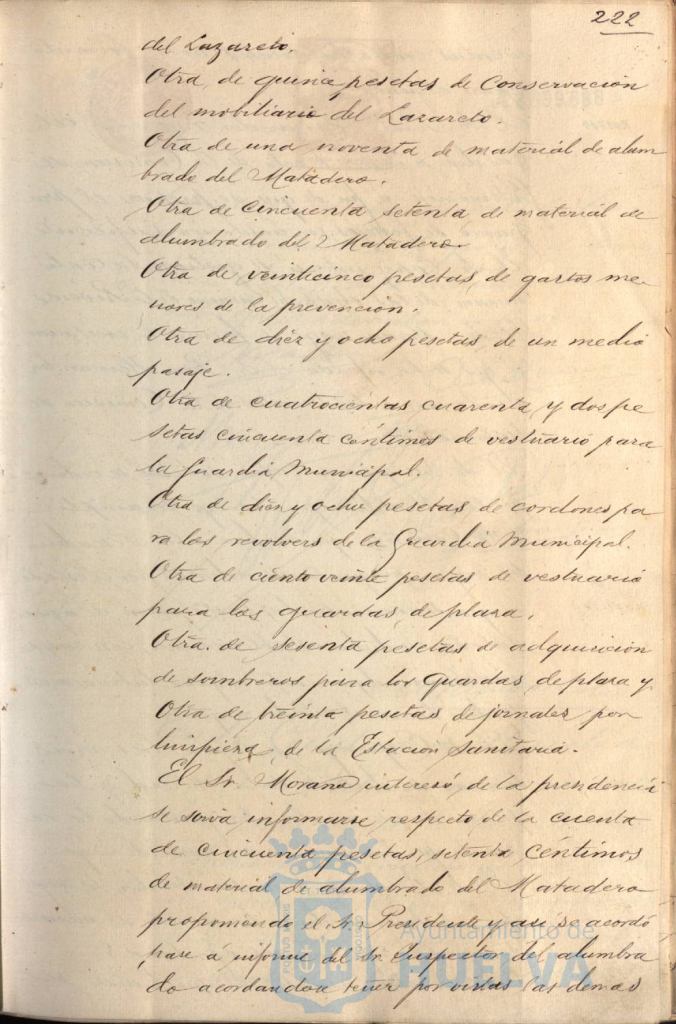 222
del Lazareto.
Otra de quince pesetas de Conservación
del mobiliario del Lazareto.
Otra de una noventa de material de alum
brado del Matadero.
Otra de cincuenta setenta de material de
alumbrado del Matadero.
Otra de veinticinco pesetas de gastos me-
nores de la prevencion.
Otra de diez y ocho pesetas de un medio
pasaje.
Otra de cuatrocientas cuarenta y dos pe
setas cincuenta céntimos de vestuario para
la Guardia Municipal.
Otra de diez y ocho pesetas de cordones pa
ra los revolvers de la Guardia Municipal.
Otra de ciento veinte pesetas de vestuario
para los guardas de plaza.
Otra de sesenta pesetas de adquisicion
de sombreros para los Guardas de plaza y
Otra de treinta pesetas de jornales por
limpieza de la Estación Sanitaria.
El Sr. Morano interesó de la presidencia
se sirva informarse respecto de la cuenta
de cincuenta pesetas, setenta céntimos
de material de alumbrado del Matadero
proponiendo el Sr. Presidente y así se acordó
pase á informe del Sr. Inspector del alumbra
do acordandose tener por vistas las demas
Ayuntamiento de
HUELVA